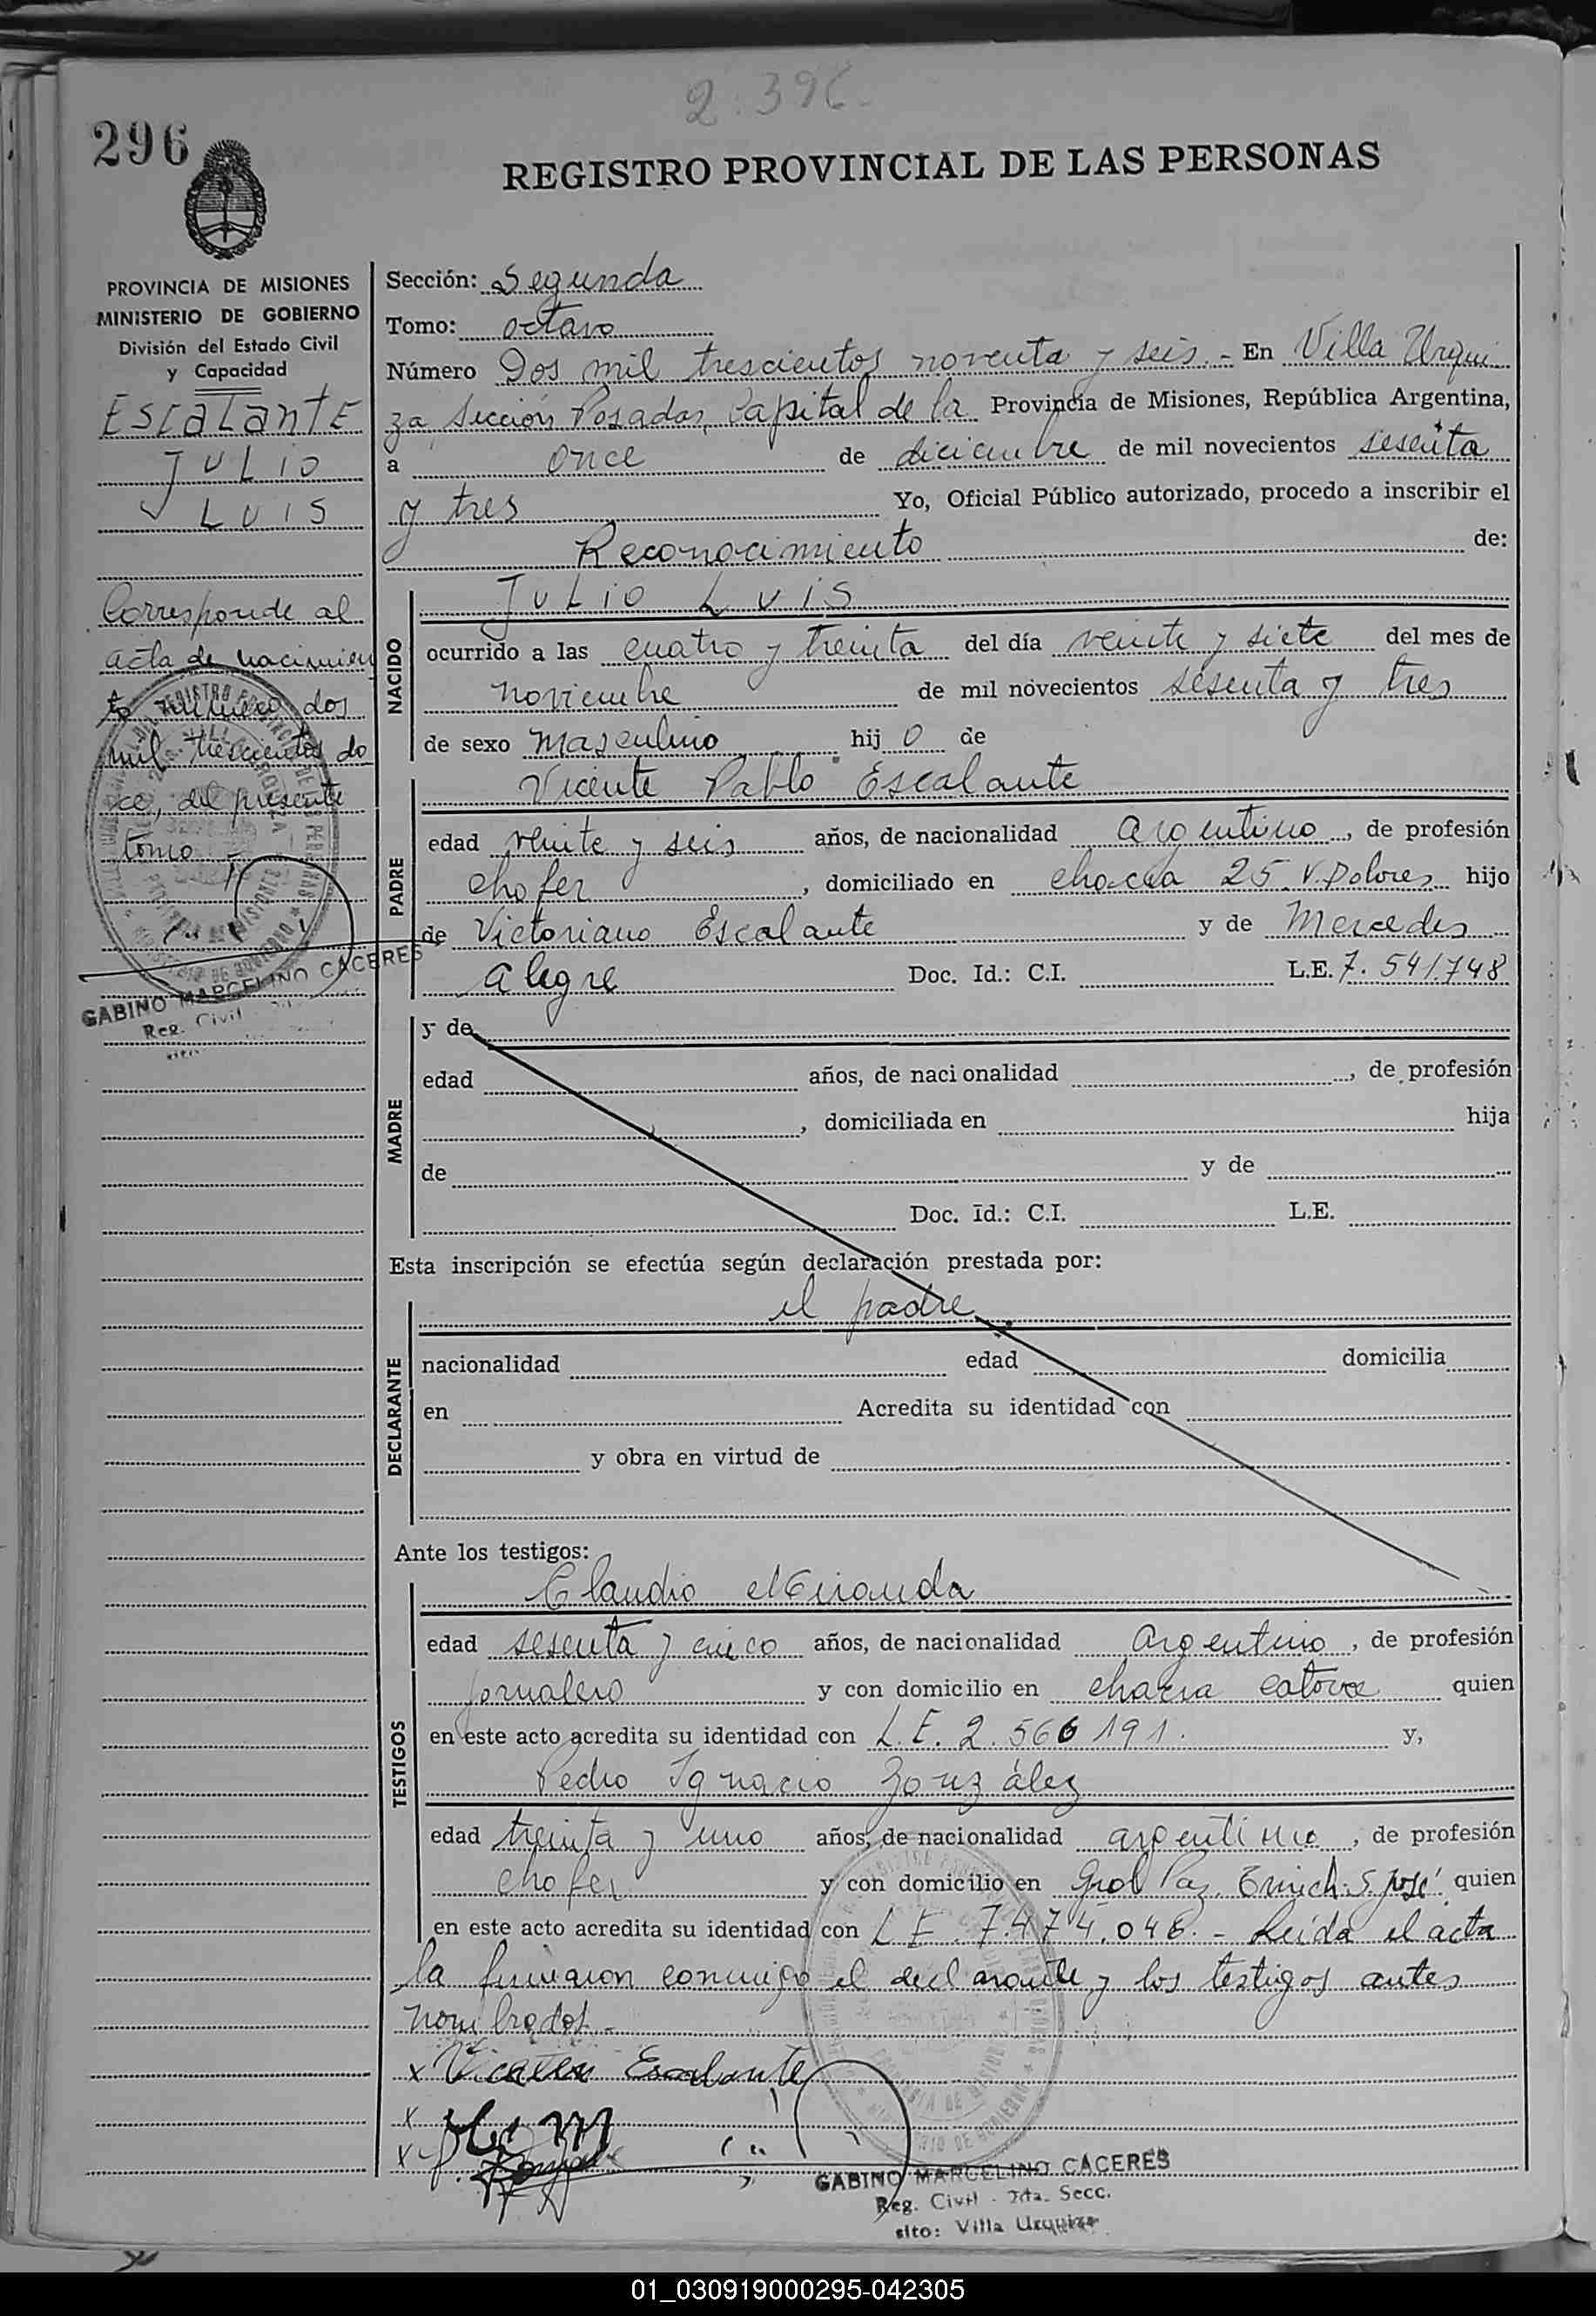 2.396.
296
REGISTRO PROVINCIAL DE LAS PERSONAS
PROVINCIA DE MISIONES
MINISTERIO DE GOBIERNO
División del Estado Civil
y Capacidad
EscaLante
JULio
LUIS
Corresponde al
acta de nacimien
to número dos
mil trescientos do
ce, del presente
tomo -
GABINO MARCELINO CACERES
Reg. Civil
Sección: Segunda
Tomo: octavo
Número Dos mil trescientos noventa y seis.- En Villa Urqui
za, Sección Posadas, Capital de la Provincia de Misiones, República Argentina,
a once de diciembre de mil novecientos sesenta
y tres Yo, Oficial Público autorizado, procedo a inscribir el
Reconocimiento de:
NACIDO
JULIO LUIS
ocurrido a las cuatro y treinta del día veinte y siete del mes de
noviembre de mil novecientos sesenta y tres
de sexo masculino hijo de
PADRE
Vicente Pablo Escalante
edad veinte y seis años, de nacionalidad argentino, de profesión
chofer, domiciliado en chacra 25 V. Dolores hijo
de Victoriano Escalante y de Mercedes
alegre Doc. Id.: C.I. L.E. 7.541.748
MADRE
y de
edad años, de nacionalidad , de profesión
, domiciliada en hija
de y de
Doc. Id.: C.I. L.E.
Esta inscripción se efectúa según declaración prestada por:
DECLARANTE
el padre
nacionalidad edad domicilia
en Acredita su identidad con
y obra en virtud de
Ante los testigos:
TESTIGOS
Claudio Miranda
edad sesenta y cinco años, de nacionalidad argentino, de profesión
jornalero y con domicilio en chacra catorce quien
en este acto acredita su identidad con L.E. 2.566191. y,
Pedro Ignacio González
edad treinta y uno años, de nacionalidad argentino, de profesión
chofer y con domicilio en Gral Paz, S. José quien
en este acto acredita su identidad con L.E. 7.474.046.- Leída el acta
la firmaron conmigo el declarante y los testigos antes
nombrados.-
x Vicente Escalante
x
x
GABINO MARCELINO CACERES
Reg. Civil - 2da. Secc.
sito: Villa Urquiza
01_030919000295-042305